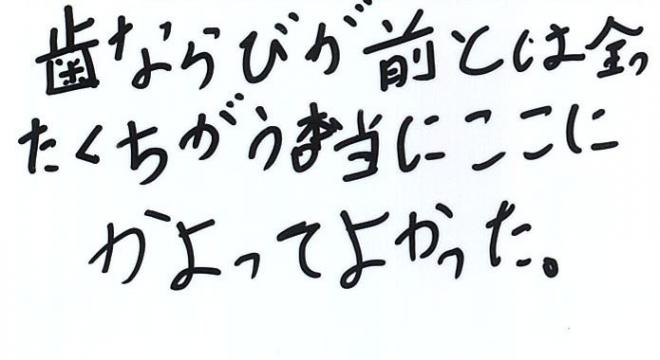 歯ならびが前とは全っ
たくちがう本当にここに
かよってよかった。